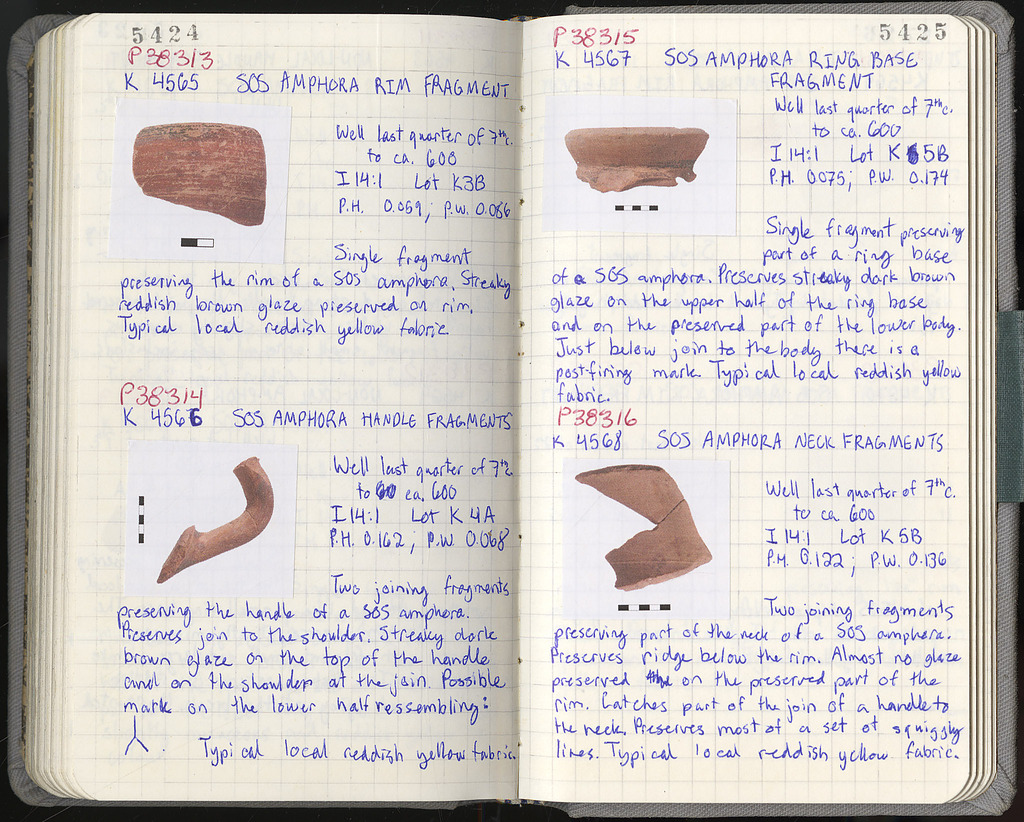 5424
P38313
K 4565 SOS AMPHORA RIM FRAGMENT
Well last quarter of 7th c.
to ca. 600
I 14:1 Lot K3B
P.H. 0.059; P.W. 0.066
Single fragment
preserving the rim of a SOS amphora. Streaky
reddish brown glaze preserved on rim.
Typical local reddish yellow fabric.
P38314
K 4566 SOS AMPHORA HANDLE FRAGMENTS
Well last quarter of 7th c.
to ca. 600
I 14:1 Lot K 4A
P.H. 0.162; P.W 0.068
Two joining fragments
preserving the handle of a SOS amphora.
Preserves join to the shoulder. Streaky dark
brown glaze on the top of the handle
and on the shoulder at the join. Possible
mark on the lower half ressembling:
. Typical local reddish yellow fabric.
5425
P38315
K 4567 SOS AMPHORA RING BASE
FRAGMENT
Well last quarter of 7th c.
to ca. 600
I 14:1 Lot K 5B
P.H. 0.075; P.W. 0.174
Single fragment preserving
part of a ring base
of a SOS amphora. Preserves streaky dark brown
glaze on the upper half of the ring base
and on the preserved part of the lower body.
Just below join to the body there is a
post-firing mark. Typical local reddish yellow
fabric.
P38316
K 4568 SOS AMPHORA NECK FRAGMENTS
Well last quarter of 7th c.
to ca 600
I 14:1 Lot K 5B
P.H. 0.122; P.W. 0.136
Two joining fragments
preserving part of the neck of a SOS amphora.
Preserves ridge below the rim. Almost no glaze
preserved on the preserved part of the
rim. Catches part of the join of a handle to
the neck. Preserves most of a set of squiggly
lines. Typical local reddish yellow fabric.